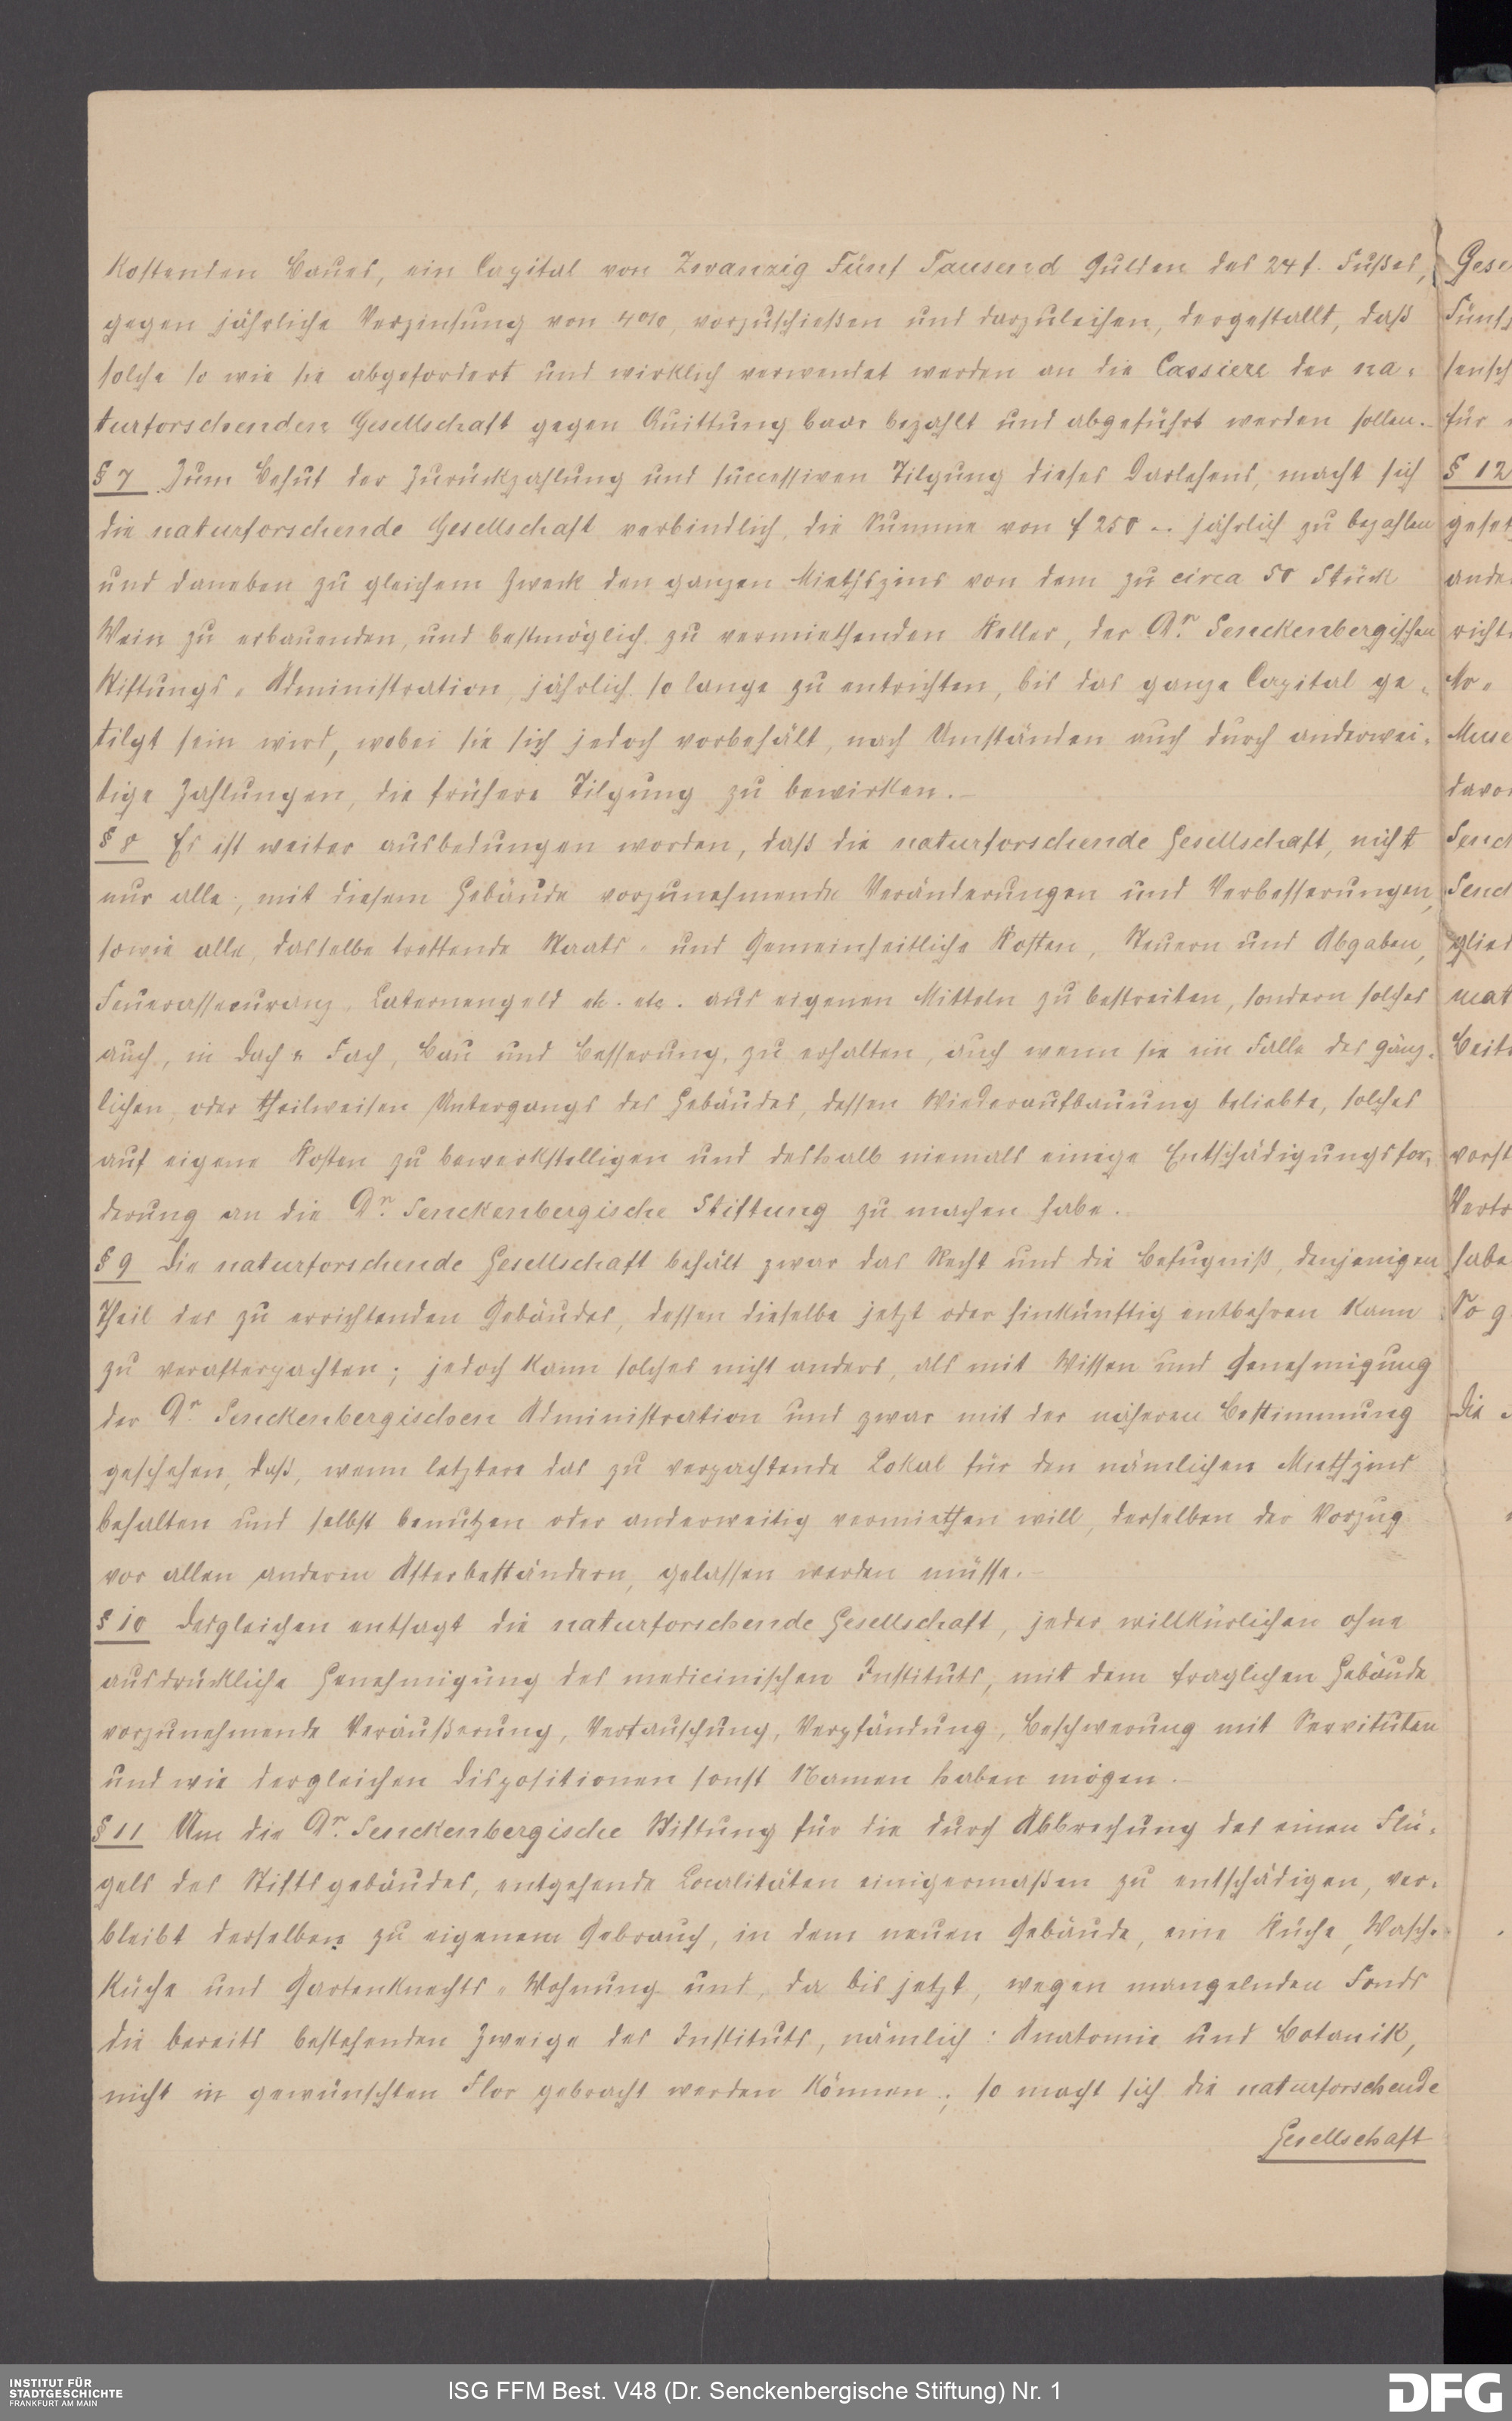 kostenden Baues, ein Capital von Zwanzig Fünf Tausend Gulden des 24 f. Fußes,
gegen jährliche Verzinsung von 4%, vorzuschießen und darzuleihen, dergestallt, daß
solche so wie sie abgefordert und wirklich verwendet werden an die Cassiere der na-
turforschenden Gesellschaft gegen Quittung baar bezahlt und abgeführt werden sollen.-
§ 7 Zum Behuf der Zurückzahlung und successiven Tilgung dieses Darlehens, macht sich
die naturforschende Gesellschaft verbindlich, die Summe von f 250 -. jährlich zu bezahlen
und daneben zu gleichem Zweck den ganzen Miethszins von dem zu circa 50 Stück
Wein zu erbauenden, und bestmöglich zu vermiethenden Keller, der Dr. Senckenbergischen
Stiftungs-Administration, jährlich so lange zu entrichten, bis das ganze Capital ge-
tilgt sein wird, wobei sie sich jedoch vorbehält, nach Umständen auch durch anderwei-
tige Zahlungen, die frühere Tilgung zu bewirken.-
§ 8 Es ist weiter ausbedungen worden, daß die naturforschende Gesellschaft, nicht
nur alle, mit diesem Gebäude vorzunehmende Veränderungen und Verbesserungen,
sowie alle, dasselbe treffende Staats- und Gemeinheitliche Kosten, Steuern und Abgaben,
Feuerassecuranz, Laternengeld etc. etc. aus eigenen Mitteln zu bestreiten, sondern solches
auch, in Dach u Fach, Bau und Besserung, zu erhalten, auch wenn sie im Falle des gänz-
lichen, oder theilweisen Untergangs des Gebäudes, dessen Wiederaufbauung beliebte, solches
auf eigene Kosten zu bewerkstelligen und deshalb niemals einige Entschädigungsfor-
derung an die Dr. Senckenbergische Stiftung zu machen habe.
§ 9 Die naturforschende Gesellschaft behält zwar das Recht und die Befugniß, denjenigen
Theil des zu errichtenden Gebäudes, dessen dieselbe jetzt oder hinkünftig entbehren kann
zu verafterpachten; jedoch kann solches nicht anders, als mit Wissen und Genehmigung
der Dr. Senckenbergischen Administration und zwar mit der näheren Bestimmung
geschehen, daß, wenn letztere das zu verpachtende Lokal für den nämlichen Miethzins
behalten und selbst benutzen oder anderweitig vermiethen will, derselben der Vorzug
vor allen anderen Afterbeständern, gelassen werden müsse.-
§ 10 Desgleichen entsagt die naturforschende Gesellschaft, jeder willkürlichen ohne
ausdrückliche Genehmigung des medicinischen Instituts, mit dem fraglichen Gebäude
vorzunehmende Veräußerung, Vertauschung, Verpfändung, Beschwerung mit Servituten
und wie dergleichen Dispositionen sonst Namen haben mögen.-
§ 11 Um die Dr. Senckenbergische Stiftung für die durch Abbrechung des einen Flü-
gels des Stiftsgebäudes, entgehende Localitäten einigermaßen zu entschädigen, ver-
bleibt derselben zu eigenem Gebrauch, in dem neuen Gebäude, eine Küche, Wasch-
küche und Gartenknechts-Wohnung und, da bis jetzt, wegen mangelnden Fonds
die bereits bestehenden Zweige des Instituts, nämlich: Anatomie und Botanik,
nicht in gewünschten Flor gebracht werden können; so macht sich die naturforschende
Gesellschaft
INSTITUT FÜR
STADTGESCHICHTE
FRANKFURT AM MAIN
ISG FFM Best. V48 (Dr. Senckenbergische Stiftung) Nr. 1
DFG